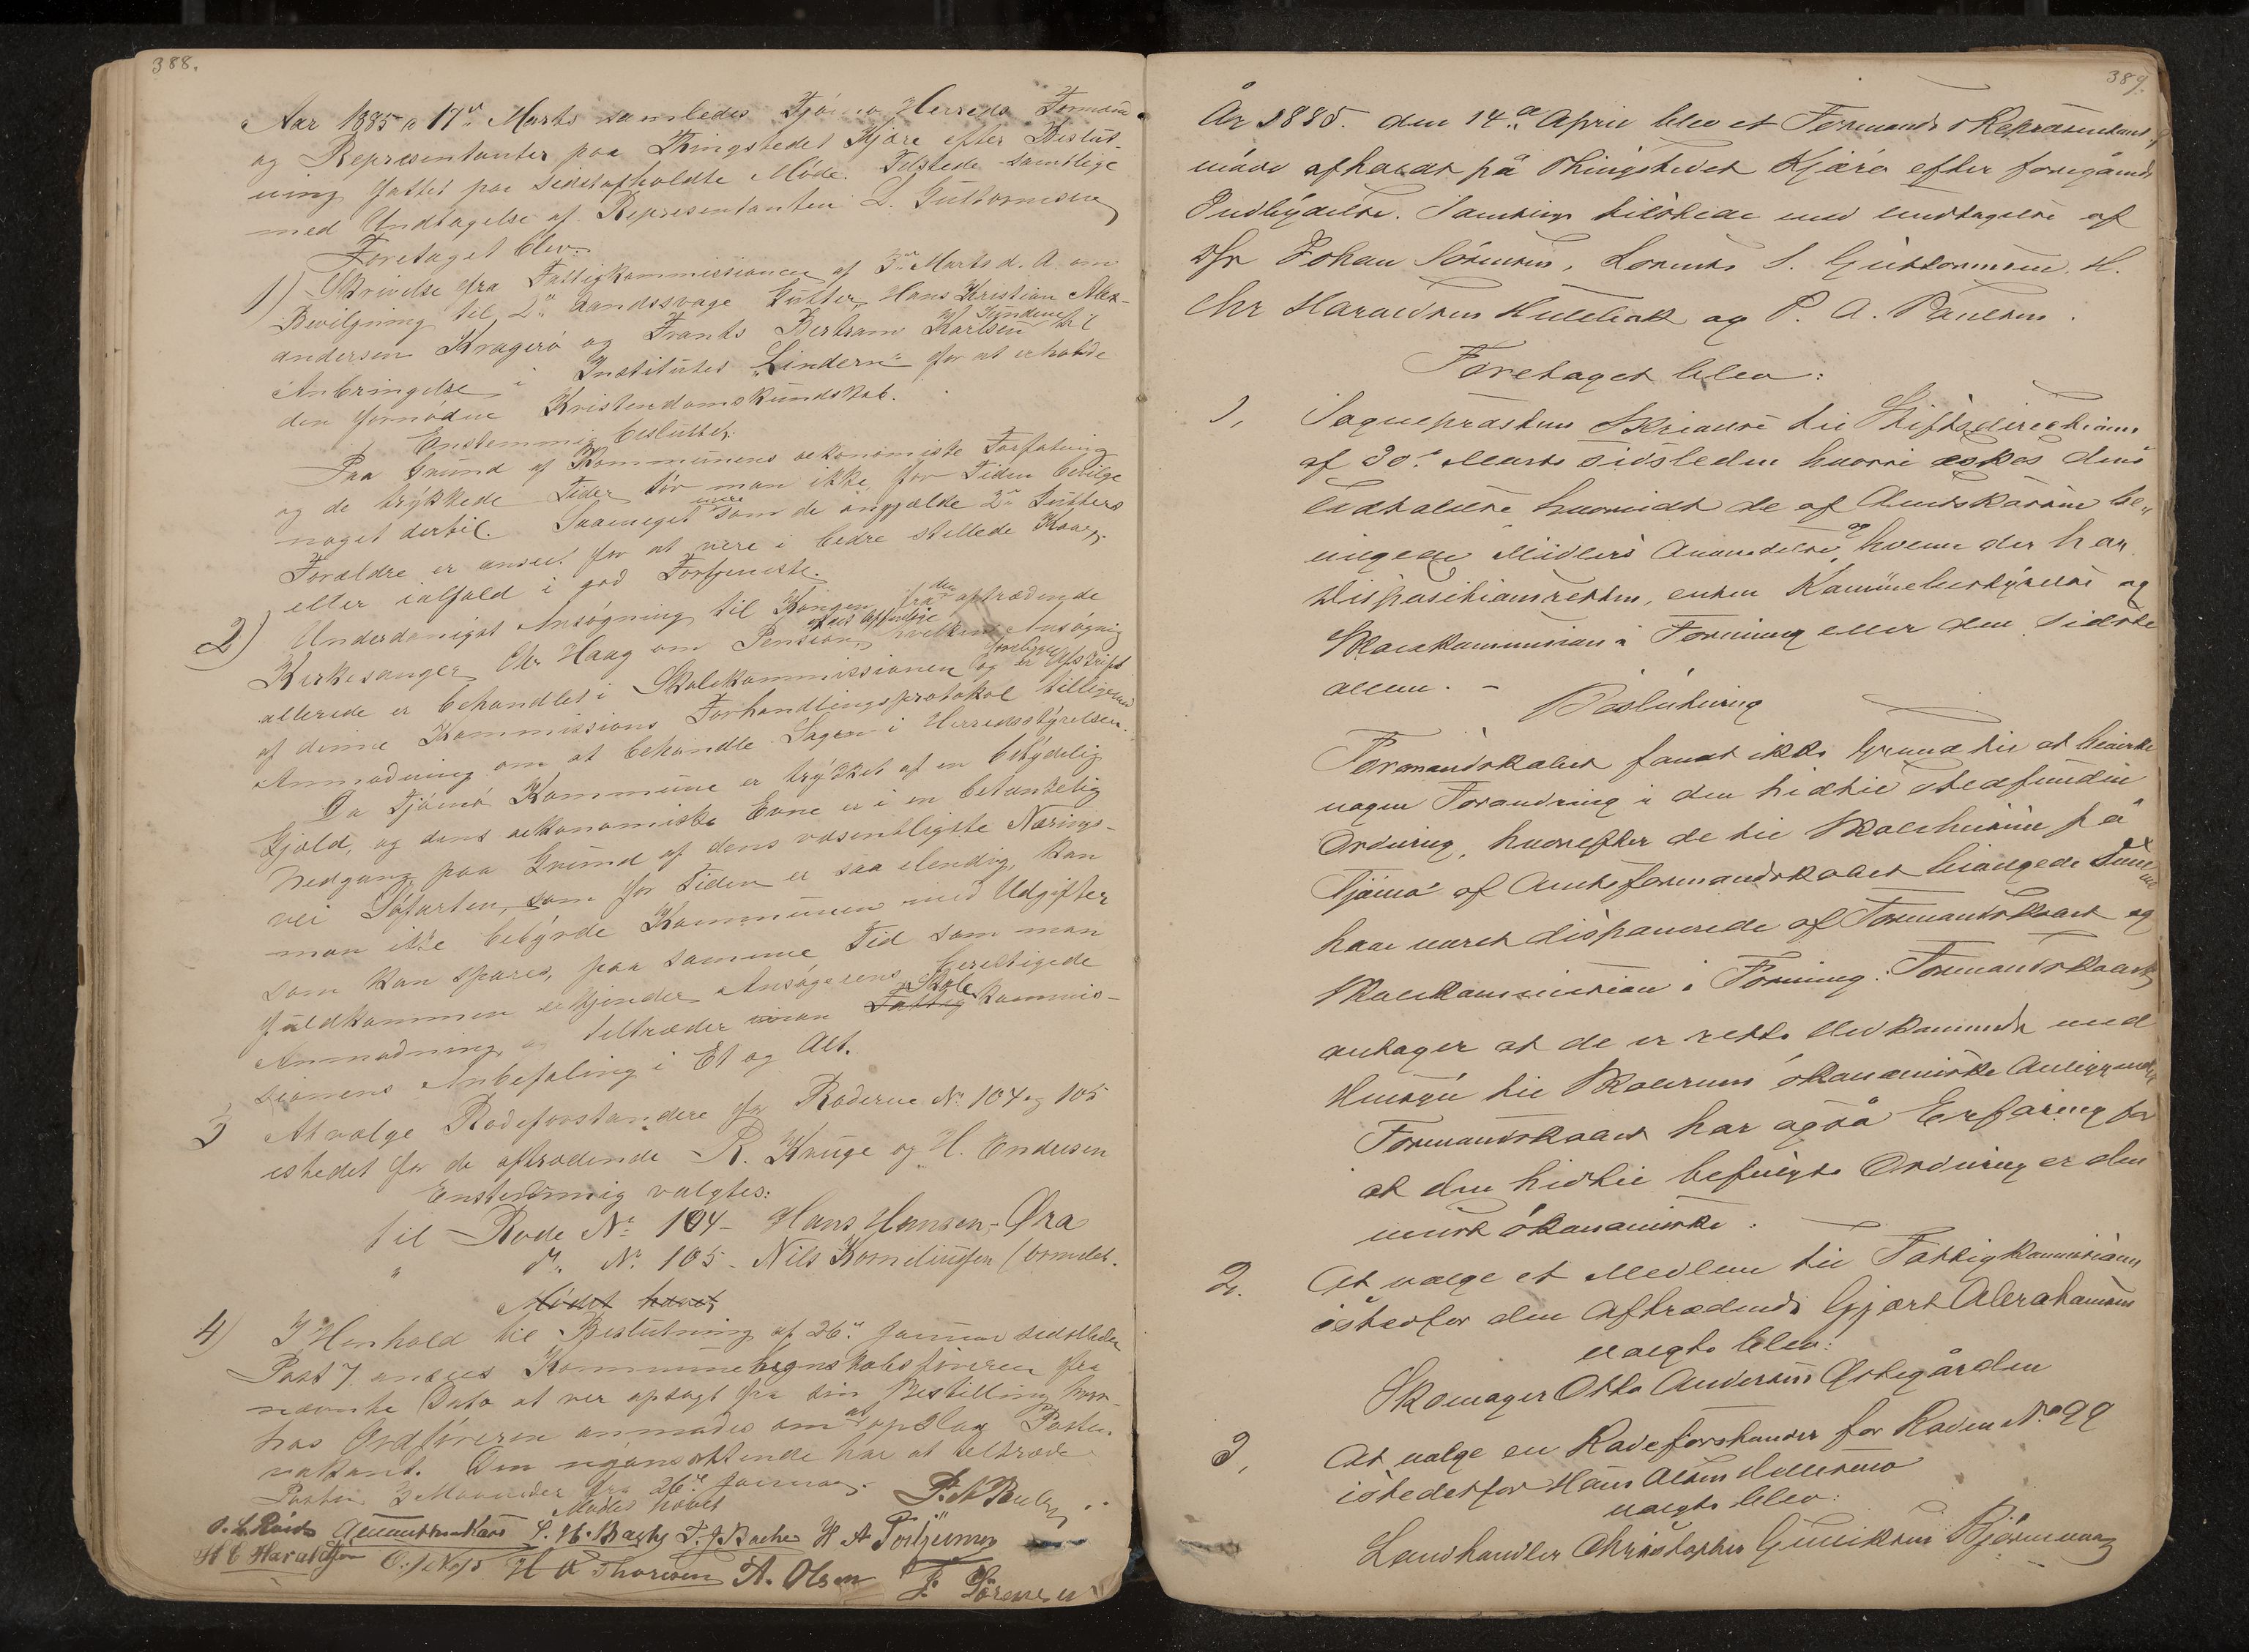 388.
Aar 1885 17de Marts samledes Tjömö Herreds Formænd
og Representanter paa Thingstedet Kjære efter Beslut-
ning fattet paa sidstafholdte Möde. Tilstede samtlige
med Undtagelse af Representanten L. Guttormsen
Foretaget blev:
1) Skrivelse fra Fattigkommissionen af 3de Marts d. A. om
Bevilgning til 2de aandssvage Gutter, Hans Kristian Alex-
andersen Kragerö og Frants Bertram Karlsen til
Anbringelse i Institutet "Lindern" for at erholde
den fornødne Kristendomskundskab.
Enstemmig besluttet:
Paa Grund af Kommunens oekonomiske Forfatning
og de trykkede Tider tör man ikke for Tiden bevilge
noget dertil. Saameget mere som de angjælde 2de Gutters
Forældre er anseet for at være i bedre stillede Kaar,
eller ialfald i god Fortjeneste.
2) Underdanigst Ansögning til Kongen fra den aftrædende
Kirkesanger Chr Haag om Pension, hvilken Ansögning
allerede er behandlet i Skolekommissionen og er Afskrift
af denne Kommissions Forhandlingsprotokol tilligemed
Anmodning om at behandle Sagen i Herredsstyrelsen.
Da Tjömö Kommune er trykket af en betydelig
Gjæld, og dens oekonomiske Evne er i en betænkelig
Nedgang paa Grund af dens væsentligste Nærings-
vei Söfarten, som for Tiden er saa elendig, kan
man ikke bebyrde Kommunen med Udgifter
som kan spares, paa samme Tid som man
fuldkommen erkjender Ansögerens berettigede
Anmodning og tiltræder man Fattig Skole kommis-
sionens Anbefaling i Et og Alt.
3 At vælge Rodeforstandere for Roderne No 104 og 105
istedet for de aftrædende R. Kruge og H. Endresen
Enstemmig valgtes:
til Rode No 104 - Hans Hansen - Øra
" d. No 105 - Nils Korneliusen
Mödet hævet
4) I Henhold til Beslutning af 26de Januar sidstleden
Post 7. ansees Kommuneregnskabsföreren fra
nævnte Dato at vær opsagt fra sin Bestilling hvor-
hos Ordföreren anmodes om at opslaa Posten
vakant. Den nyansættende har at tiltræde
Posten 3 Maaneder fra 26de Januar.
Mödet hævet
S. H. Bache T. J. Bache
H C Haraldsen H A Thoresen A. Olsen J. Sörensen
389.
År 1885. den 14de April blev et Formands & Repræsentant
möde afholdt på Thingstedet Kjærö efter foregående
Indbydelse. Samtlige tilstede med Undtagelse af
Hr Johan Sörensen, Lorents S. Guttormsen. H.
Chr Haraldsen Hulebak og P. A. Paulsen.
Foretaget blev:
1, Sognepræstens Skrivelse til Stiftsdirectionen
af 30te Marts sidsleden hvori æskes dens
Udtalelse hvorvidt de af Amtskassen be-
vilgede Midlers Anvendelse, og hvem der har
Dispositionsretten, enten Kommunebestyrelse og
Skolekommission i Forening eller den sidste
allene. -
Beslutning
Formandskabet fandt ikke Grund til at bevirke
nogen Forandring i den hidtil stedfundne
Ordning, hvorefter de til Skolehuset på
Tjömö af Amtsformandskabet bevilgede Summer
have været disponerede af Formandskabet og
Skolekommission i Forening. Formandskabet
antager at de er rette Vedkommende med
Hensyn til Skolernes ökonomiske Anliggender
Formandskabet har også Erfaring for
at den hidtil befulgte Ordning er den
mest ökonomiske.
2. At vælge et Medlem til Fattigkommissionen
istedfor den Aftrædende Gjert Abrahamsen
valgte blev:
Skomager Otto Andersen Østegården
3, At valge en Rodeforstander for Roden No 99
istedetfor Hans Olsen
valgte blev:
Landhandler Christopher